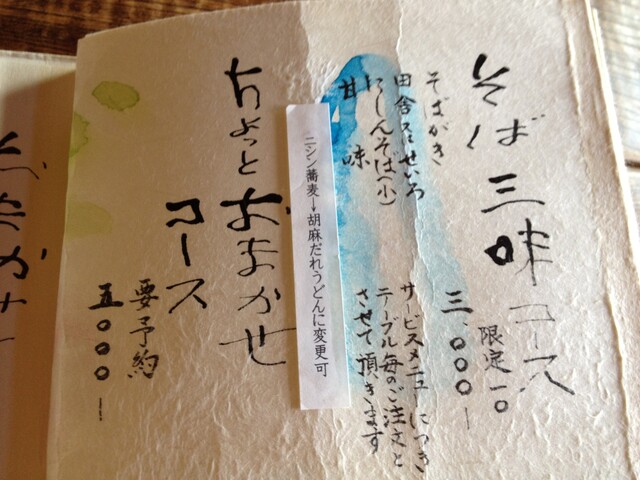 そば三味コース
限定一〇
三、〇〇〇ー
そばがき
田舎又はせいろ
にしんそば(小)
甘味
サービスメニューにつき
テーブル毎のご注文と
させて頂きます
ニシン蕎麦→胡麻だれうどんに変更可
ちょっとおまかせ
コース
要予約
五〇〇〇ー